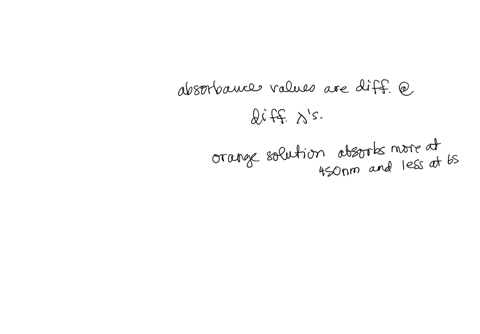 absorbance values are diff. @
diff. λ's.
orange solution absorbs more at
450nm and less at 65